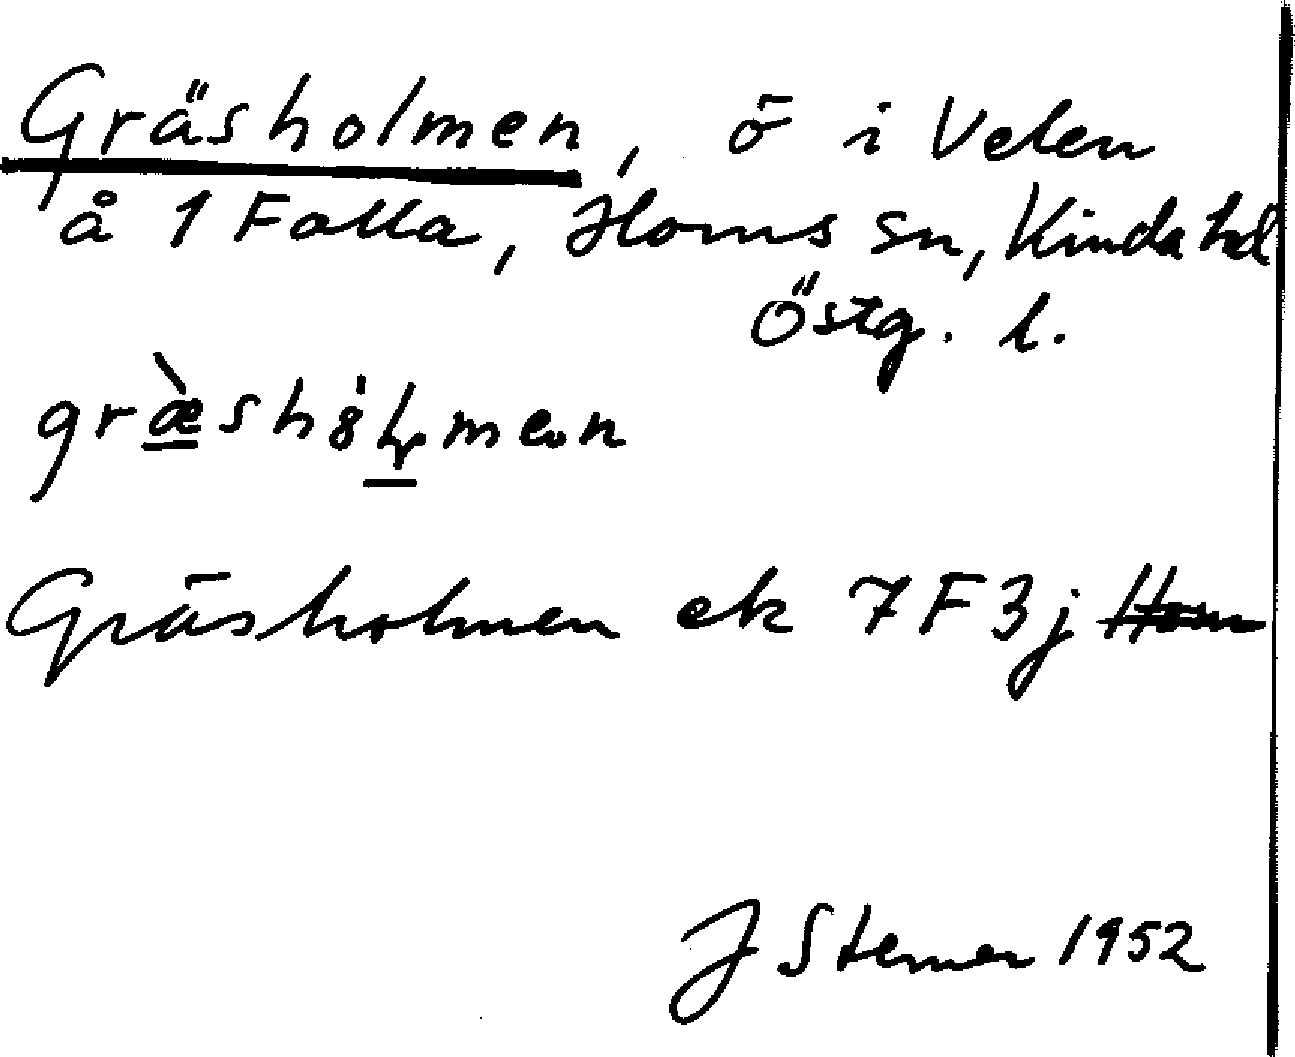 Gräsholmen, ö i Velen
å 1 Falla, Horns sn, Kinda hd
Östg. l.
græ̀shȯlmen
Gräsholmen ek 7F3j Horn
J Sterner 1952